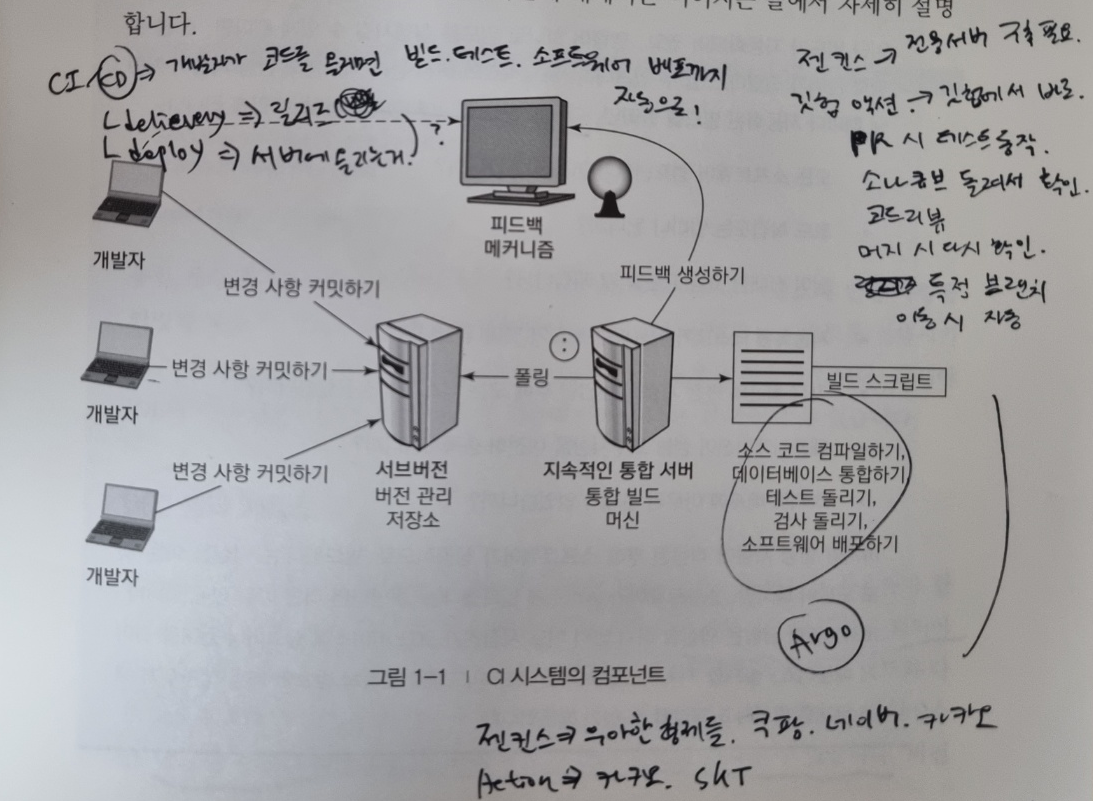 에서 자세히 설명
합니다.
CI/CD → 개발자가 코드를 올리면 빌드. 테스트. 소프트웨어 배포까지
자동으로!
젠킨스 → 전용서버 구축 필요.
깃헙 액션 → 깃헙에서 바로.
PR 시 테스트 동작.
소나큐브 돌려서 확인.
코드리뷰
머지 시 다시 확인.
특정 브랜치
이동 시 자동
delievery ⇒ 릴리즈
deploy ⇒ 서버에 올리는거.
?
피드백
메커니즘
개발자
변경 사항 커밋하기
피드백 생성하기
개발자
변경 사항 커밋하기
폴링
:
빌드 스크립트
개발자
변경 사항 커밋하기
서브버전
버전 관리
저장소
지속적인 통합 서버
통합 빌드
머신
소스 코드 컴파일하기,
데이터베이스 통합하기,
테스트 돌리기,
검사 돌리기,
소프트웨어 배포하기
Argo
그림 1-1 | CI 시스템의 컴포넌트
젠킨스 → 우아한형제들. 쿠팡. 네이버. 카카오
Action → 카카오. SKT